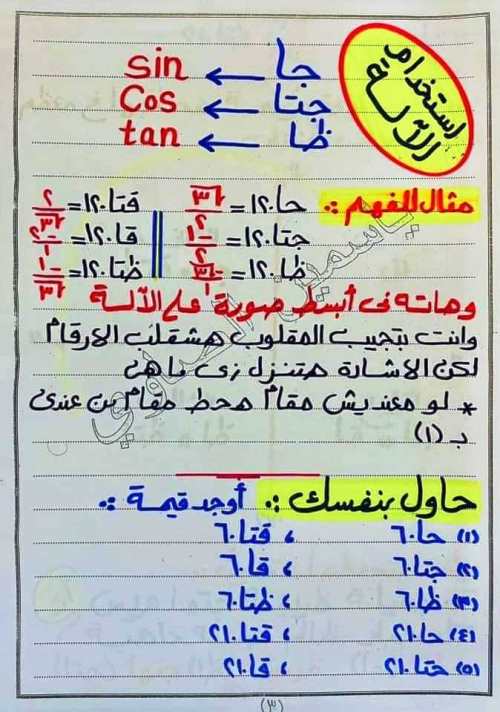 استخدام الآلة
جا ← sin
جتا ← Cos
ظا ← tan
مثال للفهم :.
حا ١٢٠ = √٣/٢ ‖ قتا ١٢٠ = ٢/√٣
جتا ١٢٠ = -١/٢ ‖ قا ١٢٠ = -٢/١
ظا ١٢٠ = -√٣/١ ‖ ظتا ١٢٠ = -١/√٣
وهاته فى أبسط صورة على الآلة
وانت بتجيب المقلوب هتقلب الارقام
لكن الاشارة هتنزل زى ماهى
* لو معنديش مقام هحط مقام من عندى
ب (١)
حاول بنفسك :. أوجد قيمة :.
(١) حا ٦٠ ، قتا ٦٠
(٢) جتا ٦٠ ، قا ٦٠
(٣) ظا ٦٠ ، ظتا ٦٠
(٤) حا ٢١٠ ، قتا ٢١٠
(٥) حتا ٢١٠ ، قا ٢١٠
(٣)